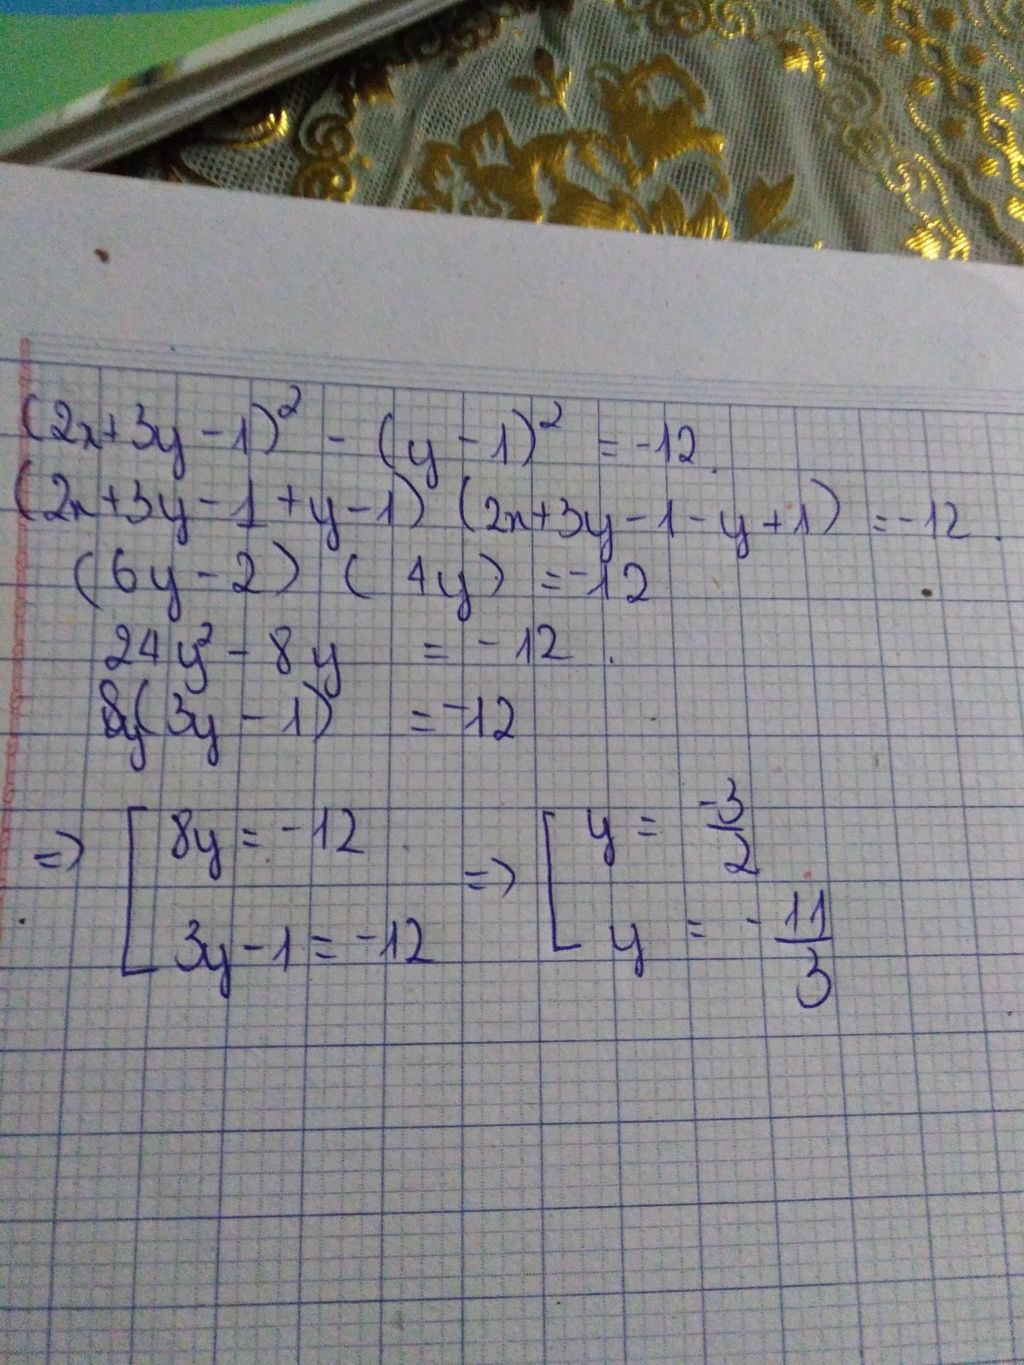 (2x+3y-1)² - (y-1)² = -12.
(2x+3y-1+y-1) (2x+3y-1-y+1) = -12.
(6y-2) (4y) = -12
24y² - 8y = -12.
8y(3y-1) = -12
=> [ 8y = -12. => [ y = -3/2
3y-1 = -12 y = -11/3